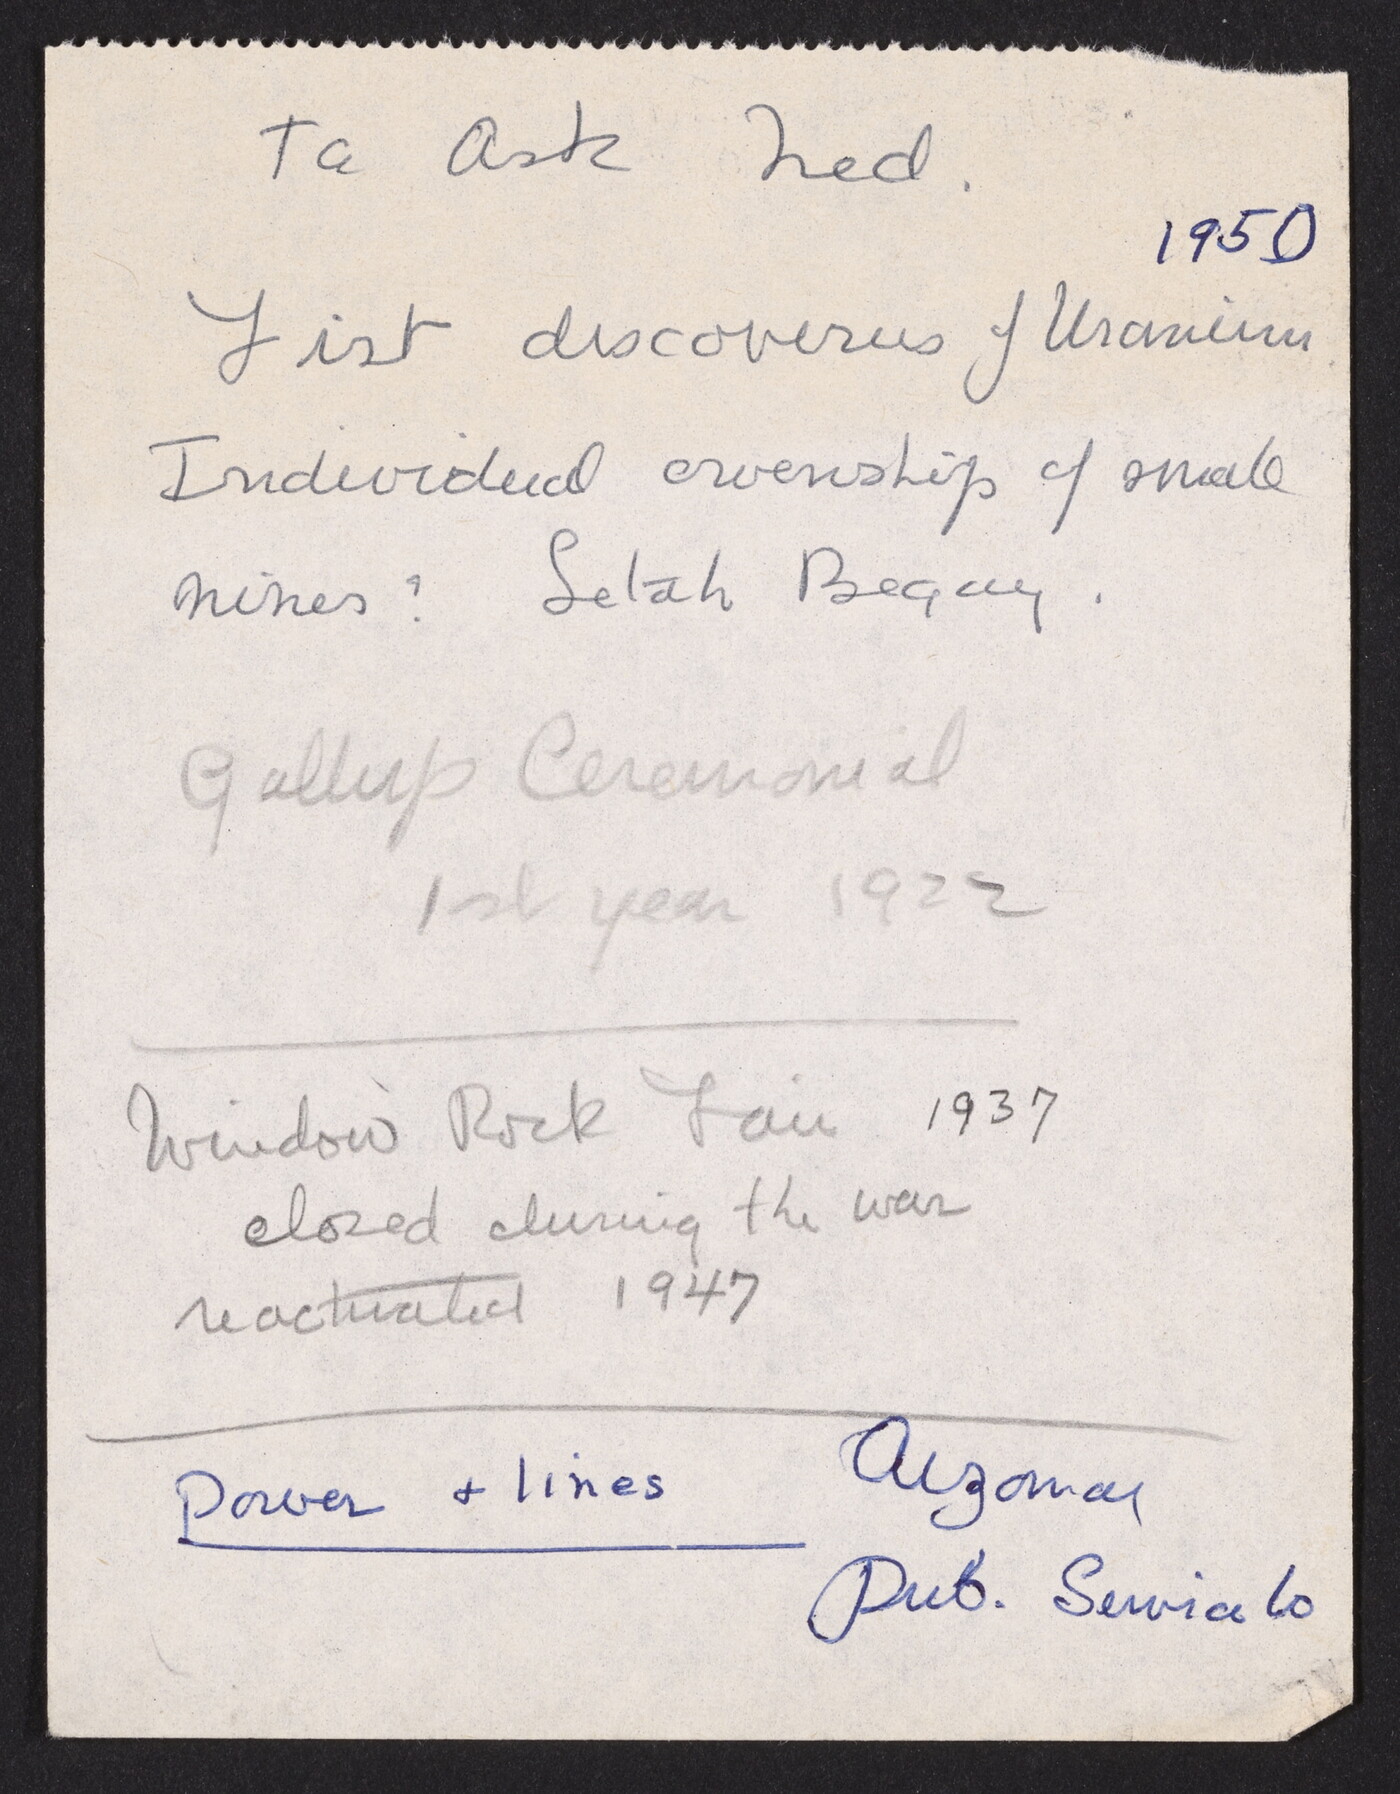 To Ask Ned.
1950
First discoveries of Uranium
Individual ownership of small
mines? Letah Begay.
Gallup Ceremonial
1st year 1922
Window Rock Fair 1937
closed during the war
reactivated 1947
Power + lines Arizona
Pub. Service Co